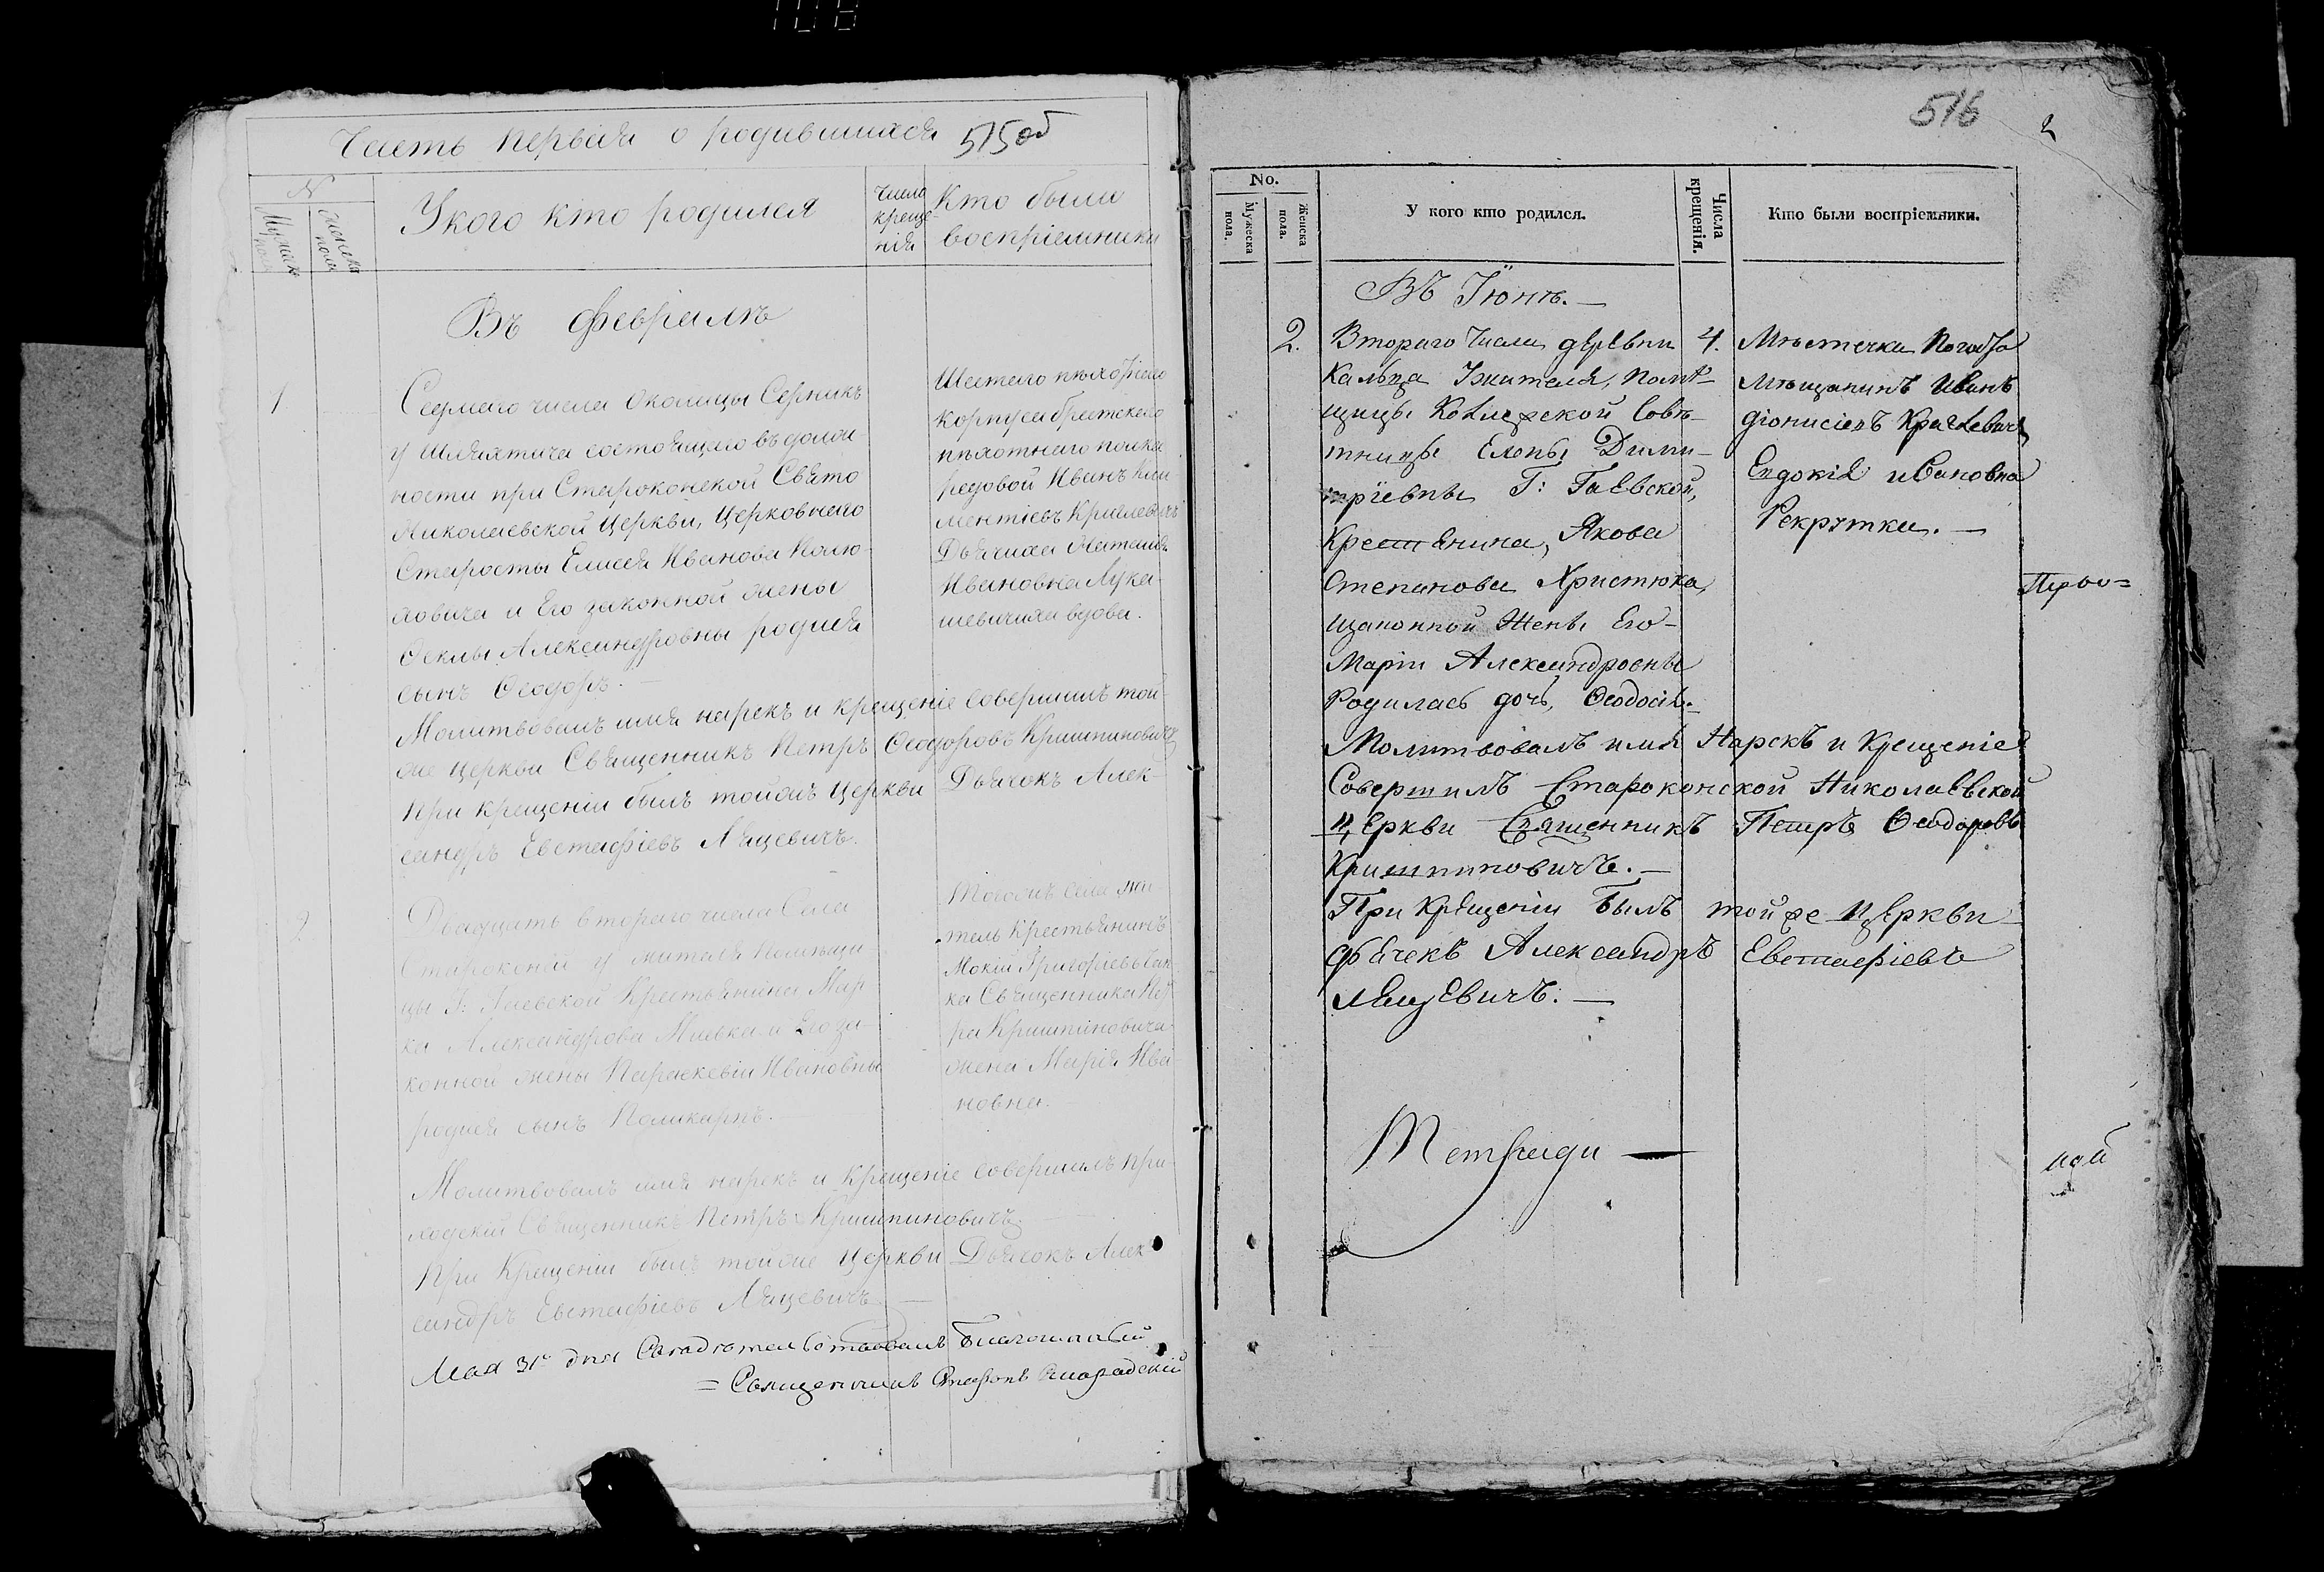 Часть первая о родившихся 515об
№
Мужеска пола
Женска пола
У кого кто родился
Числа
креще-
нія
Кто были
воспріемники
Въ Февралѣ
1
Седмаго числа околицы Серникъ
у Шляхтича состоящаго въ долж
ности при Староконской Свято
Николаевской Церкви, Церковнаго
Старосты Елисея Иванова Полю-
ховича и Его законной жены
Феклы Александровны родися
сынъ Ѳеодоръ.
Шестаго пѣхотнаго
корпуса Брестскаго
пѣхотнаго полка
редовой Иванъ Кли
ментіевъ
Дьячиха Наталия
Ивановна Лука-
шевичиха вдова.
Молитвовалъ имя нарекъ и крещеніе совершилъ той
же церкви Священникъ Петръ Ѳеодоровъ Кришпиновичъ
При крещеніи былъ тойжъ Церкви Дьячокъ Алек-
сандръ Евстафіевъ Ляцевичъ.
2
Двадцать втораго числа Села
Староконя у жителя помѣщи
цы Г: Гаевской Крестьянина Мар
ка Александрова и Его за
конной жены Параскевіи Ивановны
родися сынъ Поликарпъ.
Тогожъ села жи
тель Крестьянинъ
Мокій Григоріевъ
ка Священника Пет
ра Кришпиновича
жена Марія Ива
новна.
Молитвовалъ имя нарекъ и крещеніе совершилъ при-
ходскій Священникъ Петръ Кришпиновичъ
При Крещеніи былъ тойже Церкви Дьячокъ Алек
сандръ Евстафіевъ Ляцевичъ
Мая 31го дня Свидѣтельствовалъ Благочинный
= Священникъ Стефанъ
516
2
No.
Мужеска пола.
Женска пола.
У кого кто родился.
Числа крещенія.
Кто были воспріемники.
Въ Іюнѣ.—
2.
Втораго Числа деревни
Кальца Жителя, помѣ-
щицы Колиежской Совѣ-
тницы Елены Дими-
тріевны Г: Гаевской,
Крестянина, Якова
Степанова Христюка,
Законной Жены Его-
Маріи Александровны
Родилась дочь, Ѳеодосія.
4.
Мѣстечка Погоста
Мѣщанинъ Иванъ
Діонисіевъ
Евдокія Ивановна
Рекрутка.—
Молитвовалъ имя Нарекъ и Крещеніе
Совершилъ Староконской Николаевской
Церкви Священникъ Петръ Ѳеодоровъ
Кришпиновичъ.—
При Крещеніи Былъ той же Церкви
Дьячекъ Александръ Евстафіевъ
Ляцевичъ.—
Тетради —